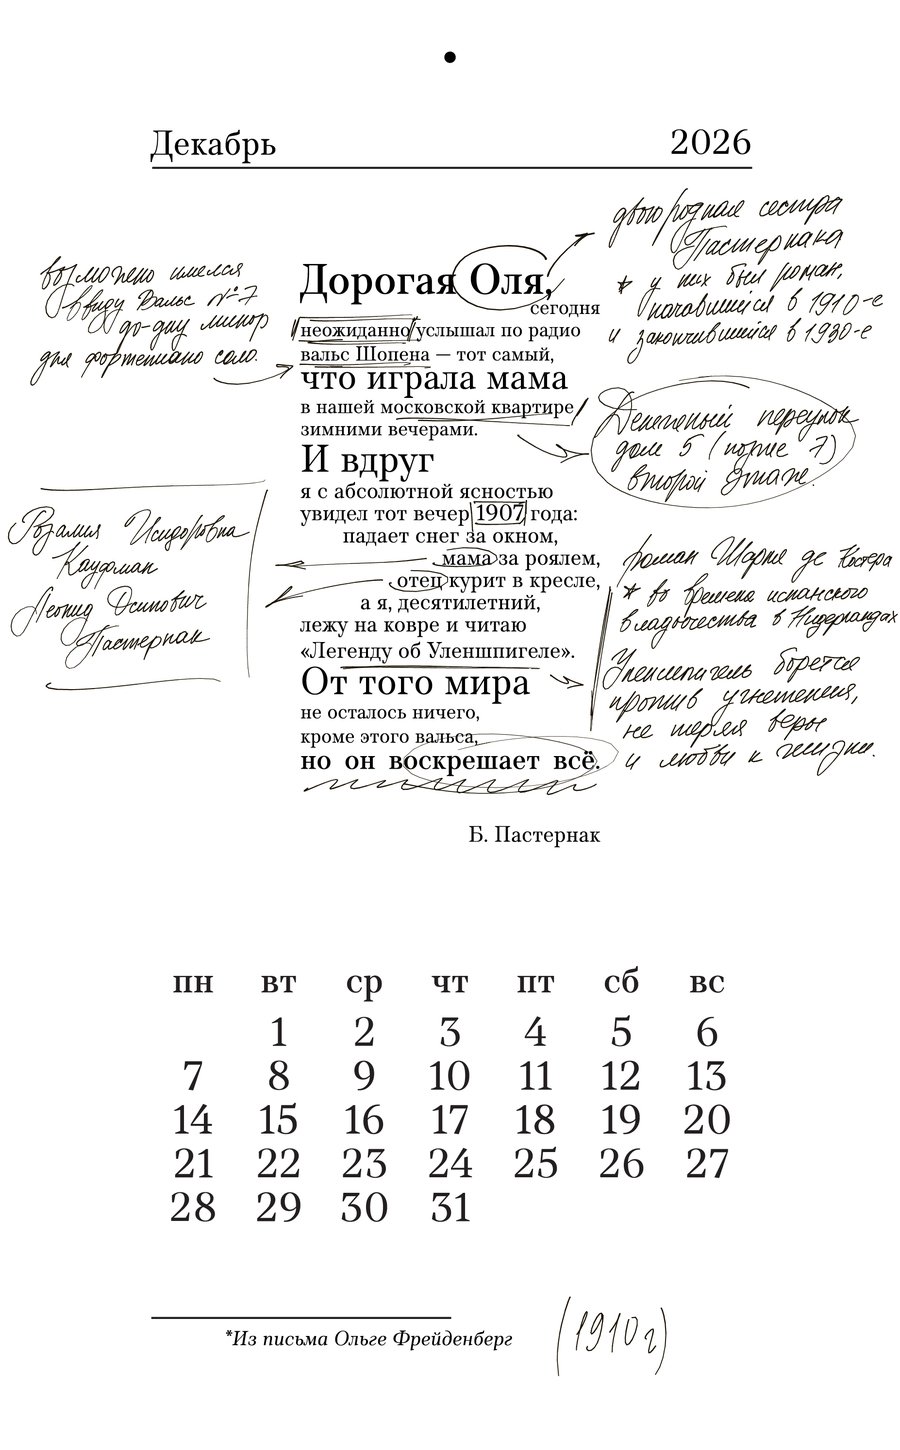 Декабрь 2026
двоюродная сестра
Пастернака
* у них был роман,
начавшийся в 1910-е
и закончившийся в 1930-е
возможно имелся
ввиду Вальс №7
до-диез минор
для фортепиано соло.
Дорогая Оля,
сегодня
неожиданно услышал по радио
вальс Шопена — тот самый,
что играла мама
в нашей московской квартире
зимними вечерами.
И вдруг
я с абсолютной ясностью
увидел тот вечер 1907 года:
падает снег за окном,
мама за роялем,
отец курит в кресле,
а я, десятилетний,
лежу на ковре и читаю
«Легенду об Уленшпигеле».
От того мира
не осталось ничего,
кроме этого вальса,
но он воскрешает всё.
Б. Пастернак
переулок
дом 5 (позже 7)
второй этаж.
Розалия Исидоровна
Кауфман
Леонид Осипович
Пастернак
роман Шарля де Костера
* во времена испанского
владычества в Нидерландах
Уленшпигель борется
против угнетения,
не теряя веры
и любви к жизни.
пн вт ср чт пт сб вс
1 2 3 4 5 6
7 8 9 10 11 12 13
14 15 16 17 18 19 20
21 22 23 24 25 26 27
28 29 30 31
*Из письма Ольге Фрейденберг (1910 г)